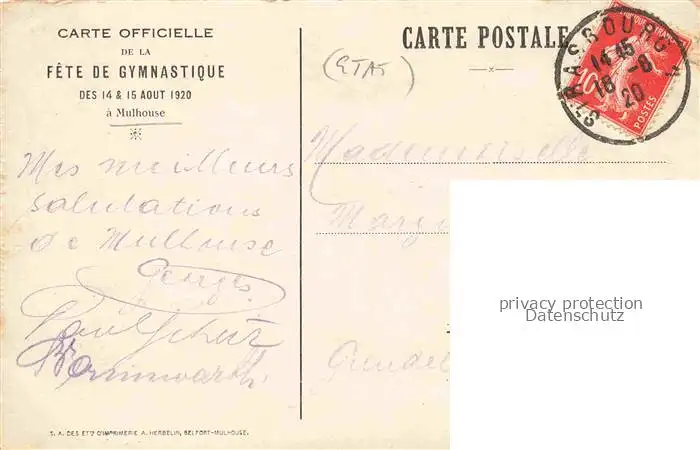 CARTE OFFICIELLE
DE LA
FÊTE DE GYMNASTIQUE
DES 14 & 15 AOUT 1920
à Mulhouse
Mes meilleurs
salutations
de Mulhouse
Georges
S. A. DES ETTS D'IMPRIMERIE A. HERBELIN, BELFORT-MULHOUSE.
CARTE POSTALE
(ETAT)
STRASBOURG
14 45
16 -8
20
10
POSTES
Mademoiselle
privacy protection
Datenschutz